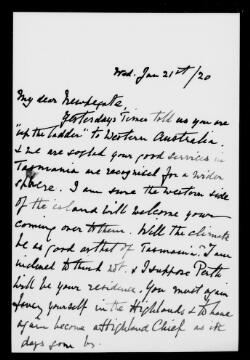 Wed. Jan 21st/20
My dear Newdegate,
Yesterdays Times told us you are
"up the ladder" to Western Australia.
& we are so glad your good services in
Tasmania are recognised for a wider
sphere. I am sure the western side
of the island will welcome your
coming over to them. Will the climate
be as good as that of Tasmania? I am
inclined to think not. & I suppose Perth
will be your residence. You must again
fancy yourself in the Highlands & to have
again become a Highland Chief as in
days gone by.